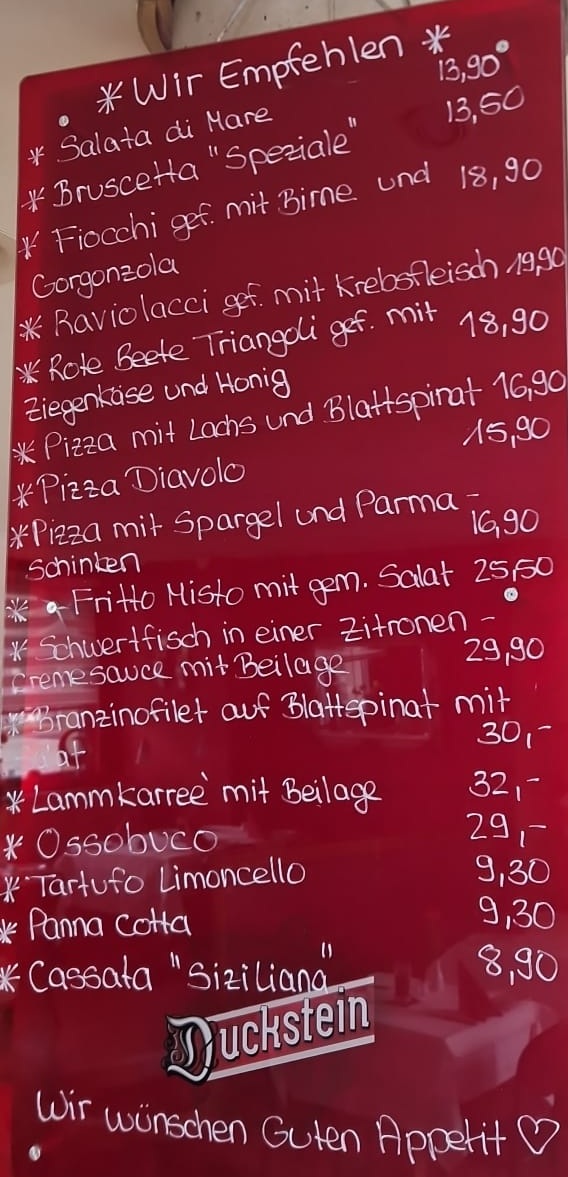 * Wir Empfehlen *
* Salata di Mare 13,90
* Bruscetta "Speziale" 13,50
* Fiocchi gef. mit Birne und 18,90
Gorgonzola
* Raviolacci gef. mit Krebsfleisch 19,90
* Rote Beete Triangoli gef. mit 18,90
Ziegenkäse und Honig
* Pizza mit Lachs und Blattspinat 16,90
* Pizza Diavolo 15,90
* Pizza mit Spargel und Parma-
Schinken 16,90
* Fritto Misto mit gem. Salat 25,50
* Schwertfisch in einer Zitronen-
cremesauce mit Beilage 29,90
* Branzinofilet auf Blattspinat mit
30,-
* Lammkarreè mit Beilage 32,-
* Ossobuco 29,-
* Tartufo Limoncello 9,30
* Panna Cotta 9,30
* Cassata "Siziliana" 8,90
Duckstein
Wir wünschen Guten Appetit ♡